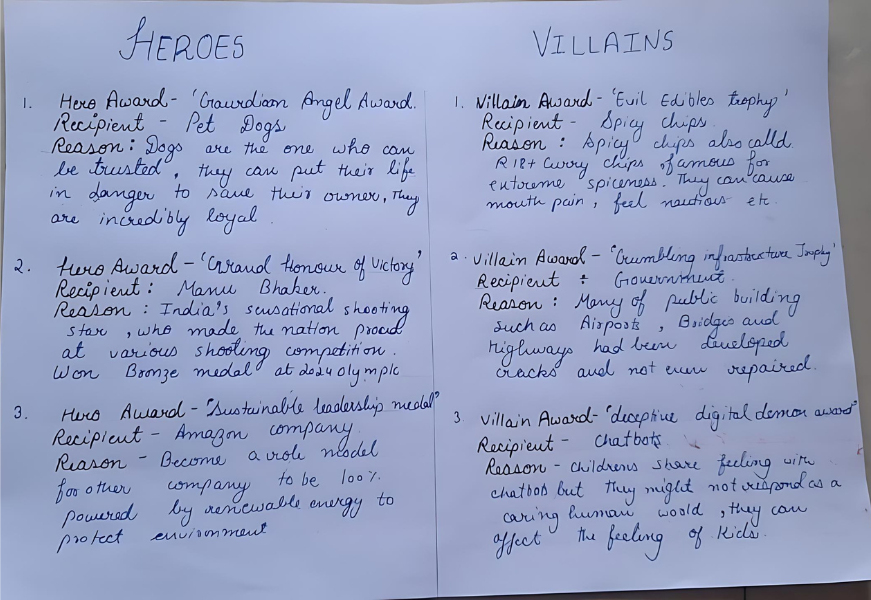 HEROES
1. Hero Award - 'Gaurdian Angel Award.
Recipient - Pet Dogs
Reason : Dogs are the one who can
be trusted, they can put their life
in danger to save their owner, They
are incredibly loyal.
2. Hero Award - 'Grand Honour of Victory'
Recipient : Manu Bhaker.
Reason : India's sensational shooting
star, who made the nation proud
at various shooting competition.
Won Bronze medal at 2024 olympic
3. Hero Award - "Sustainable leadership medal"
Recipient - Amazon company.
Reason - Become a role model
for other company to be 100%
powered by renewable energy to
protect environment
VILLAINS
1. Villain Award - 'Evil Edibles trophy'
Recipient - Spicy chips.
Reason : Spicy chips also calld
R 18+ Curry chips, famous for
extreme spiceness. They can cause
mouth pain, feel nautious etc
2. Villain Award - "Crumbling infrastructure Trophy'
Recipient : Government.
Reason : Many of public building
such as Airports, Bridges and
Highways had been developed
cracks and not even repaired.
3. Villain Award - "deceptive digital demon award"
Recipient - Chatbots
Reason - Childrens share feeling with
chatbots but they might not respond as a
caring human would, they can
affect the feeling of kids.